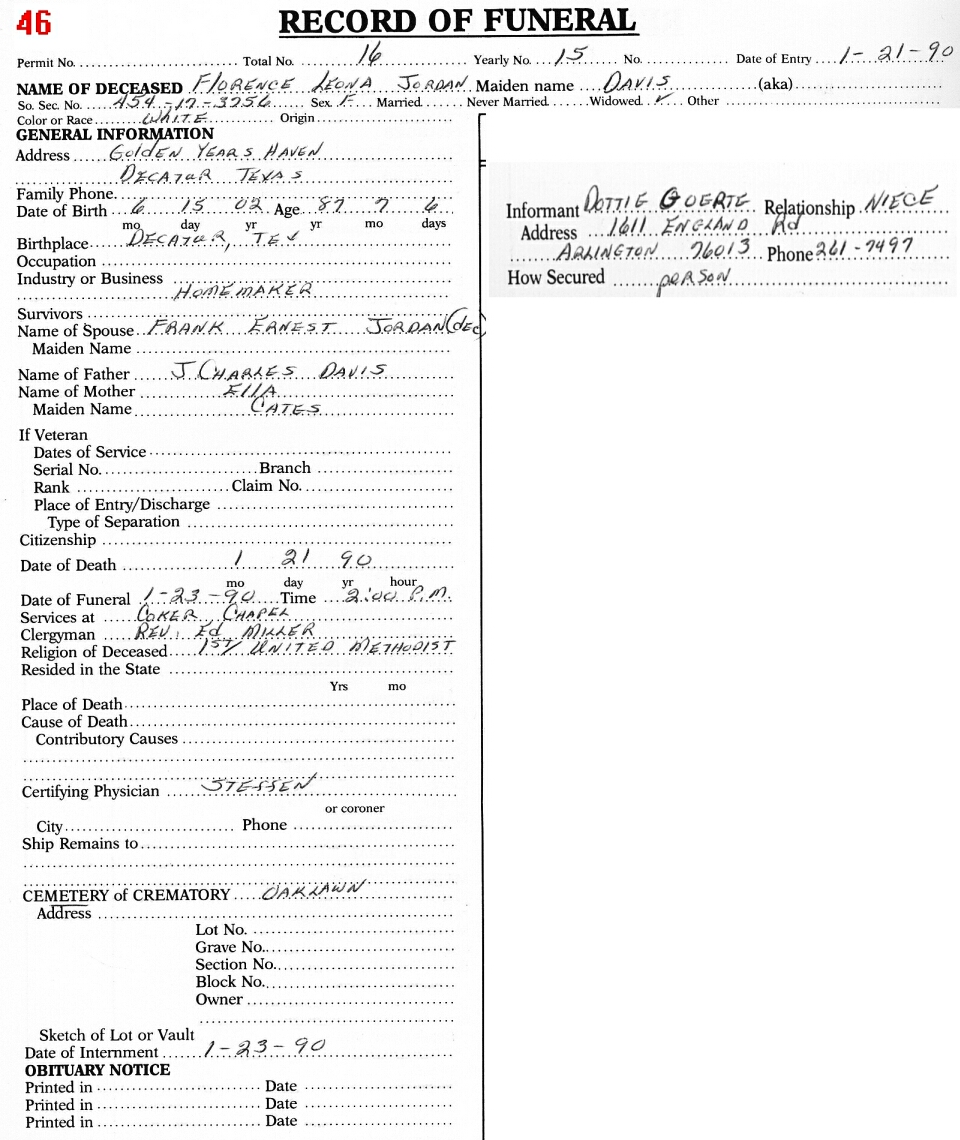 46
RECORD OF FUNERAL
Permit No. Total No. 16 Yearly No. 15 No. Date of Entry 1-21-90
NAME OF DECEASED FLORENCE LEONA JORDAN Maiden name DAVIS (aka)
So. Sec. No. 454-17-3256 Sex F Married Never Married Widowed ✓ Other
Color or Race WHITE Origin
GENERAL INFORMATION
Address GOldEN YEARS HAVEN
DECATUR TEXAS
Family Phone
Date of Birth 6 15 02 Age 87 7 6
mo day yr yr mo days
Birthplace DECATUR, TEX
Occupation
Industry or Business
HOMEMAKER
Survivors
Name of Spouse FRANK ERNEST JORDAN (dec)
Maiden Name
Name of Father J CHARLES DAVIS
Name of Mother EllA
Maiden Name CATES
If Veteran
Dates of Service
Serial No. Branch
Rank Claim No.
Place of Entry/Discharge
Type of Separation
Citizenship
Date of Death 1 21 90
mo day yr hour
Date of Funeral 1-23-90 Time 2:00 P.M.
Services at COKER CHAPEL
Clergyman REV. Ed MILLER
Religion of Deceased 1ST UNITED METHODIST
Resided in the State
Yrs mo
Place of Death
Cause of Death
Contributory Causes
Certifying Physician STESSEN
or coroner
City Phone
Ship Remains to
CEMETERY of CREMATORY OAKLAWN
Address
Lot No.
Grave No.
Section No.
Block No.
Owner
Sketch of Lot or Vault
Date of Internment 1-23-90
OBITUARY NOTICE
Printed in Date
Printed in Date
Printed in Date
Informant DOTTIE GOERTE Relationship NIECE
Address 1611 ENGLAND Rd
ARLINGTON 76013 Phone 261-7497
How Secured pERSON